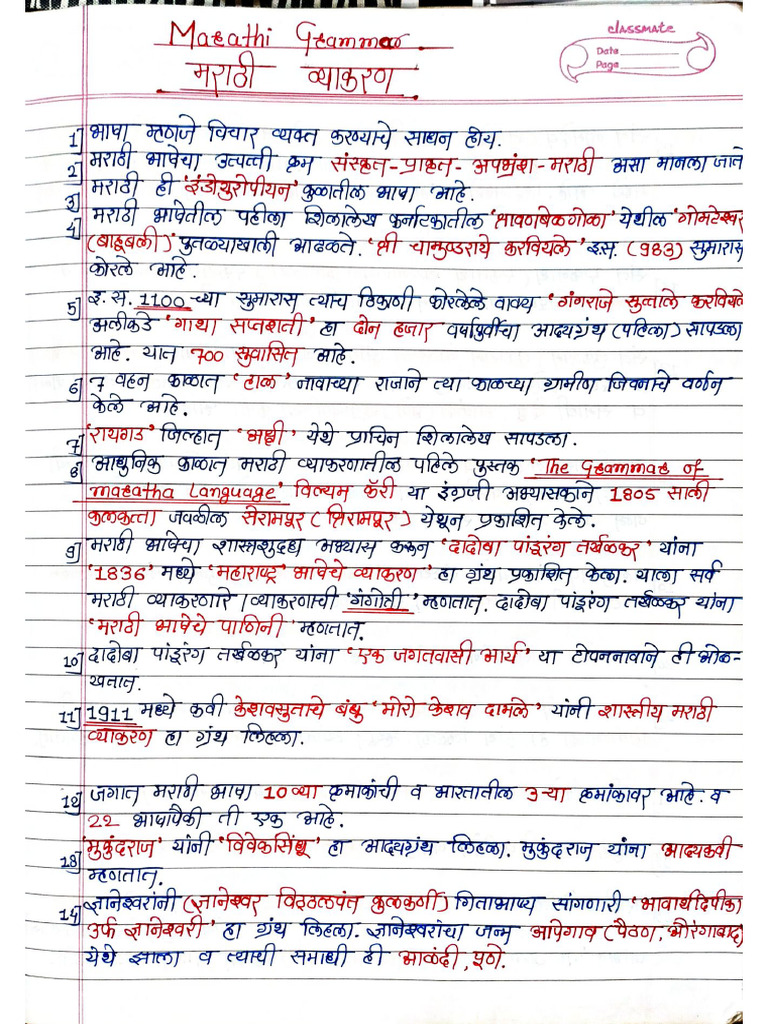 Marathi Grammar
classmate
Date
Page
मराठी व्याकरण
1] भाषा म्हणजे विचार व्यक्त करण्याचे साधन होय.
2] मराठी भाषेचा उत्पत्ती क्रम संस्कृत-प्राकृत-अपभ्रंश-मराठी असा मानला जाते
3] मराठी ही 'इंडोयुरोपीयन' कुळातील भाषा आहे.
4] मराठी भाषेतील पहीला शिलालेख कर्नाटकातील 'श्रावणबेळगोळा' येथील 'गोमटेश्वर
(बाहूबली) पुतळ्याखाली आढळते. 'श्री चामुण्डराये करवियले' इ.स. (983) सुमारास
कोरले आहे.
5] इ.स. 1100-च्या सुमारास त्याच ठिकाणी कोरलेले वाक्य 'गंगराजे सुत्ताले करवियले
अलीकडे 'गाथा सप्तशती' हा दोन हजार वर्षापुर्वीचा आद्यग्रंथ (पहिला) सापडला
आहे. यात 700 सुवासित आहे.
6] 7 वहन काळात 'हाल' नावाच्या राजाने त्या काळच्या ग्रामीण जिवनाचे वर्णन
केले आहे.
7] 'रायगड' जिल्हात 'अक्षी' येथे प्राचिन शिलालेख सापडला.
8] आधुनिक काळात मराठी व्याकरणातील पहिले पुस्तक 'The Grammar of
maratha Language' विल्यम कॅरी या इंग्रजी अभ्यासकाने 1805 साली
कलकत्ता जवळील सेरामपूर (श्रिरामपूर) येथून प्रकाशित केले.
9] मराठी भाषेचा शास्त्रशुद्ध अभ्यास करून 'दादोबा पांडूरंग तर्खळकर' यांना
'1836' मध्ये 'महाराष्ट्र' भाषेचे व्याकरण' हा ग्रंथ प्रकाशित केला. याला सर्व
मराठी व्याकरणारे / व्याकरणाची 'गंगोत्री' म्हणतात. दादोबा पांडूरंग तर्खळकर यांना
'मराठी भाषेचे पाणिनी' म्हणतात.
10] दादोबा पांडूरंग तर्खळकर यांना 'एक जगतवासी आर्य' या टोपननावाने ही ओळ-
खतात.
11] 1911 मध्ये कवी केशवसुताचे बंधू 'मोरो केशव दामले' यांनी शास्त्रीय मराठी
व्याकरण हा ग्रंथ लिहला.
12] जगात मराठी भाषा 10 व्या क्रमाकांची व भारतातील 3-या क्रमांकावर आहे. व
22 भाषापैकी ती एक आहे.
13] 'मुकुंदराज' यांनी 'विवेकसिंधू' हा आद्यग्रंथ लिहला. मुकुंदराज यांना आद्यकवी
म्हणतात.
14] ज्ञानेश्वरांनी (ज्ञानेश्वर विठ्ठलपंत कुळकर्णी) गिताभाष्य सांगणारी 'भावार्थदिपीका
उर्फ ज्ञानेश्वरी' हा ग्रंथ लिहला. ज्ञानेश्वरांचा जन्म आपेगाव (पैठण, औरंगाबाद)
येथे झाला व त्याची समाधी ही आळंदी, पूणे.